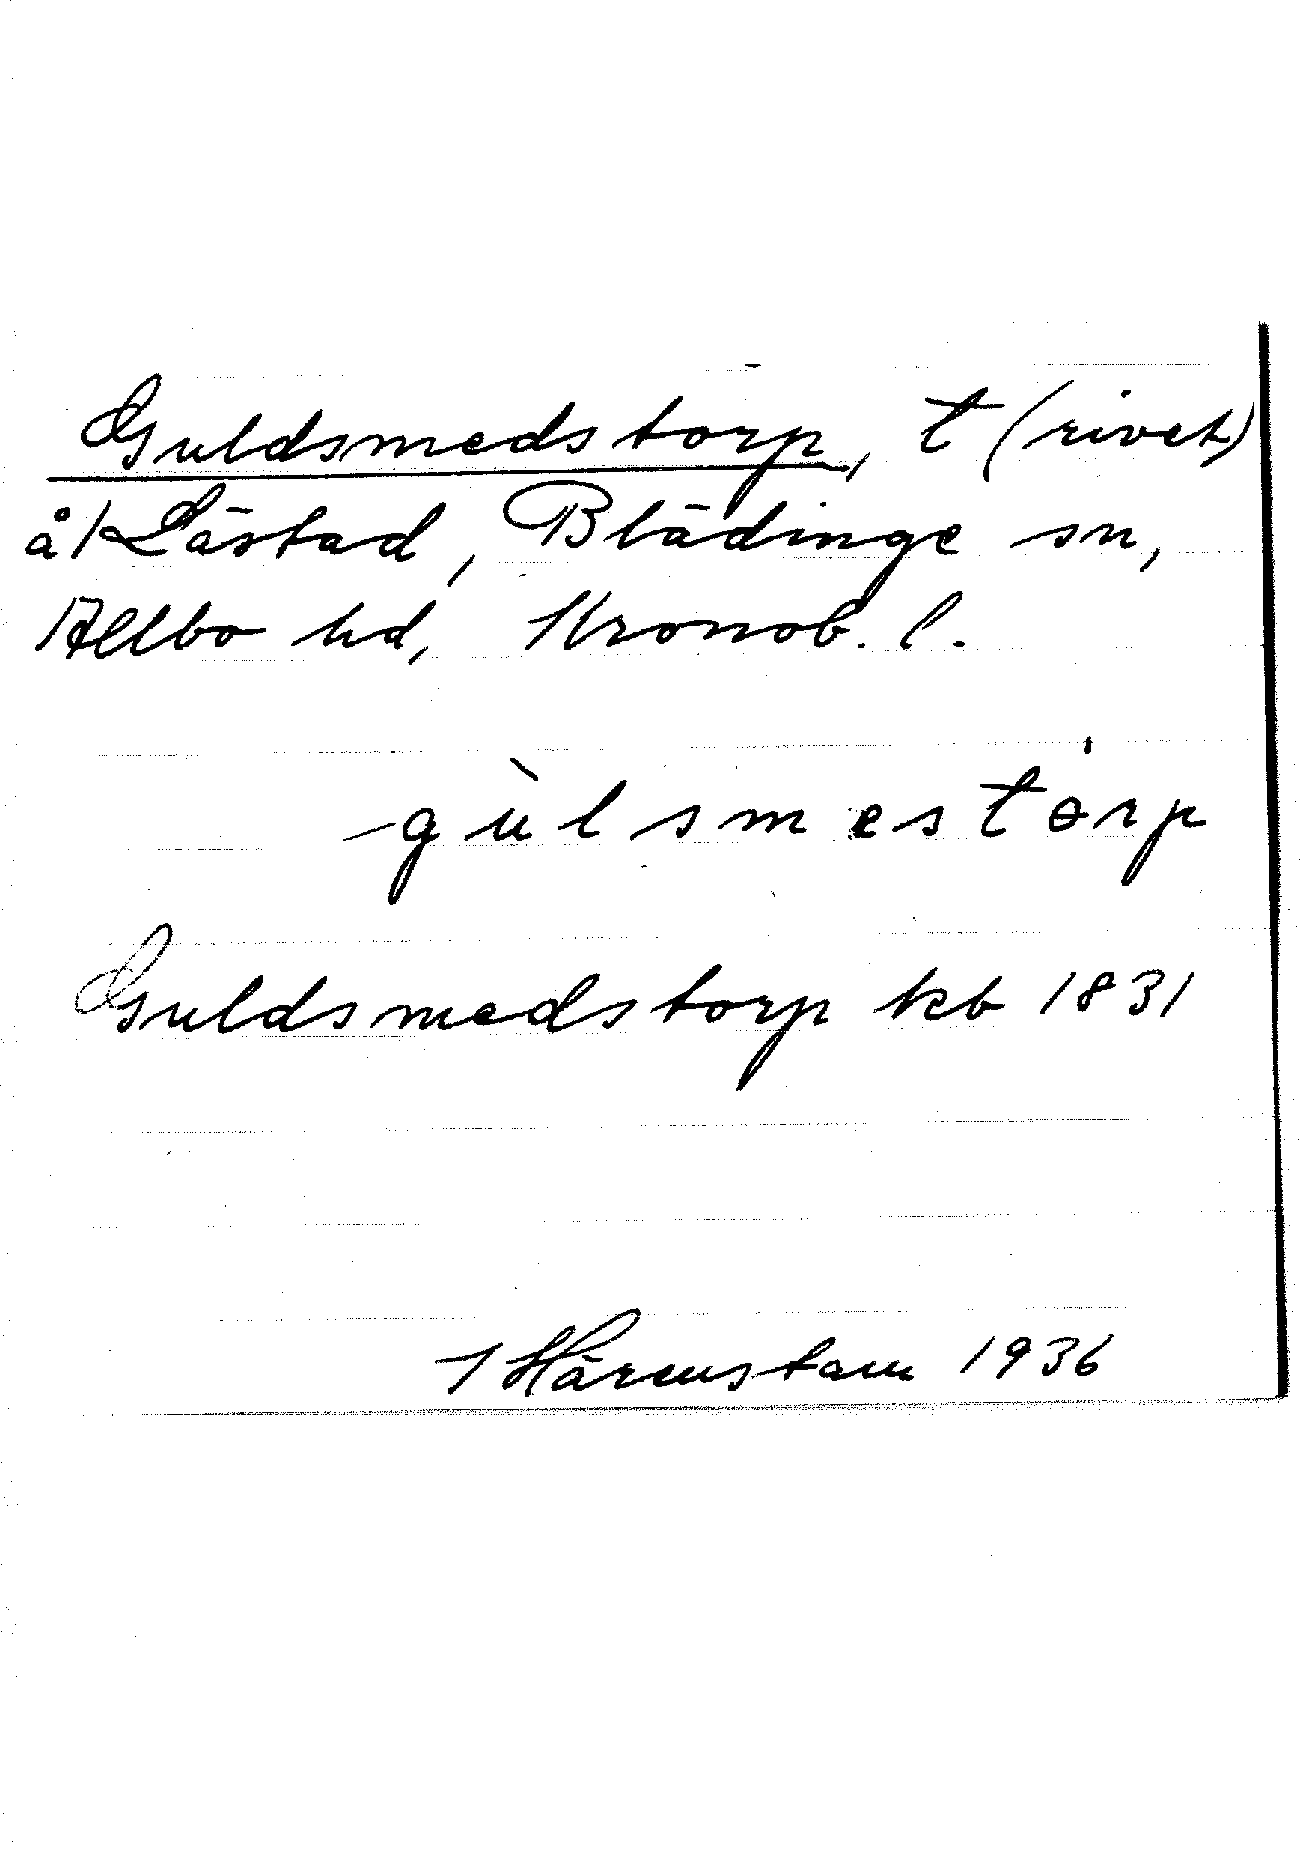 Guldsmedstorp, t (rivet)
å Låstad, Blädinge sn,
Allbo hd, Kronob. l.
gùlsmestórp
Guldsmedstorp kb 1831
J Härenstam 1936